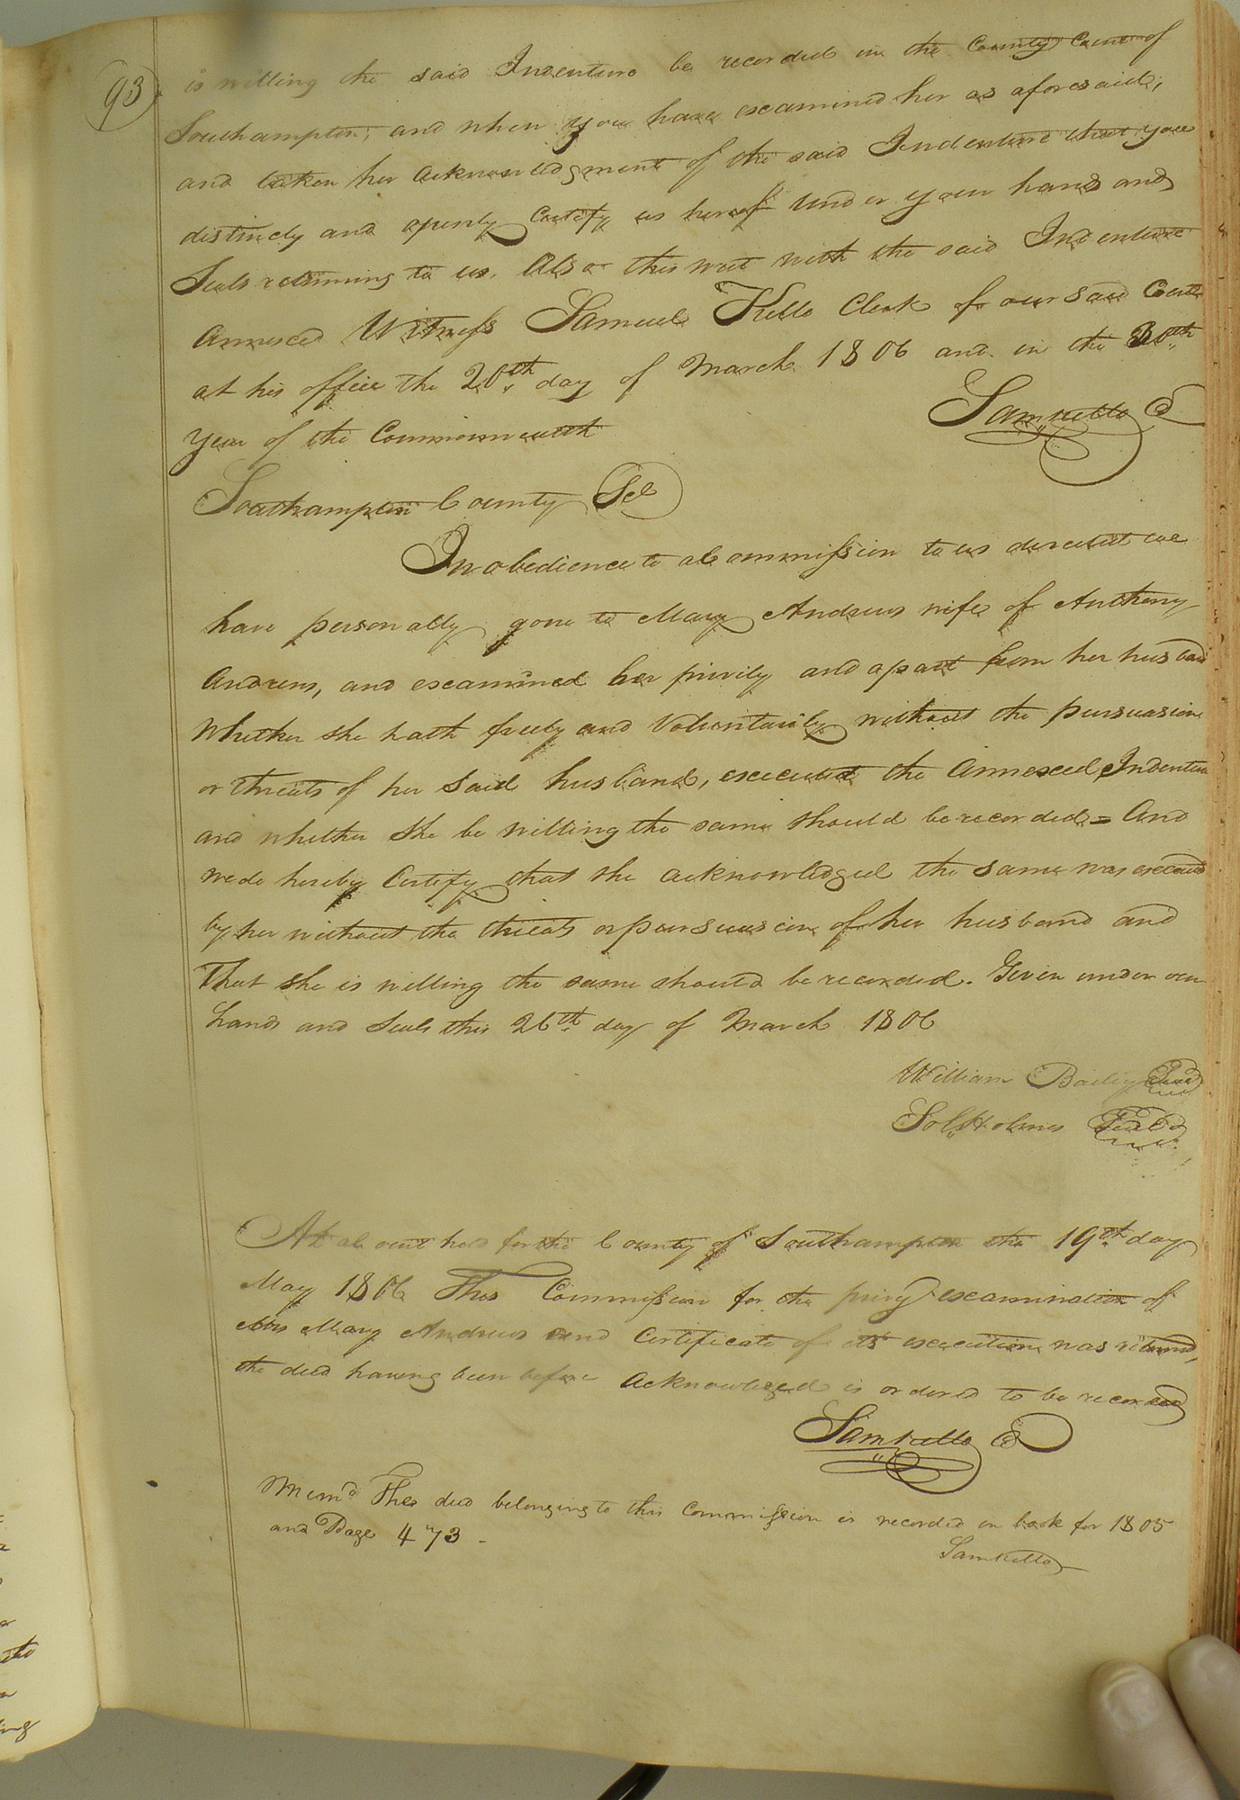 93
is willing the said Indenture be recorded in the County Court of
Southampton; and when you have examined her as aforesaid,
and taken her acknowledgment of the said Indenture that you
distinctly and openly Certify us hereof under your hands and
Seals returning to us. Also this writ with the said Indenture
annexed Witness Samuel Kello Clerk of our said Court
at his office the 20th day of March 1806 and in the 30th
year of the Commonwealth
Sam Kello C
Southampton County Sct
In obedience to a Commission to us directed we
have personally gone to Mary Andrews wife of Anthony
Andrews, and examined her privily and apart from her husband
Whether she hath freely and Voluntarily without the persuasion
or threats of her said husband, executed the annexed Indenture
and whether she be willing the same should be recorded = And
we do hereby Certify that she acknowledged the same was executed
by her without the threats or persuasion of her husband and
that she is willing the same should be recorded. Given under our
hands and seals this 26th day of March 1806
William Bailey Seal
Sol. Holmes Seal
At a Court held for the County of Southampton the 19th day
May 1806 This Commission for the privy examination of
Mrs Mary Andrews and Certificate of its execution was returned,
the deed having been before acknowledged is ordered to be recorded
Sam Kello C
Memo The deed belonging to this Commission is recorded in book for 1805
and Page 473 -
Sam Kello